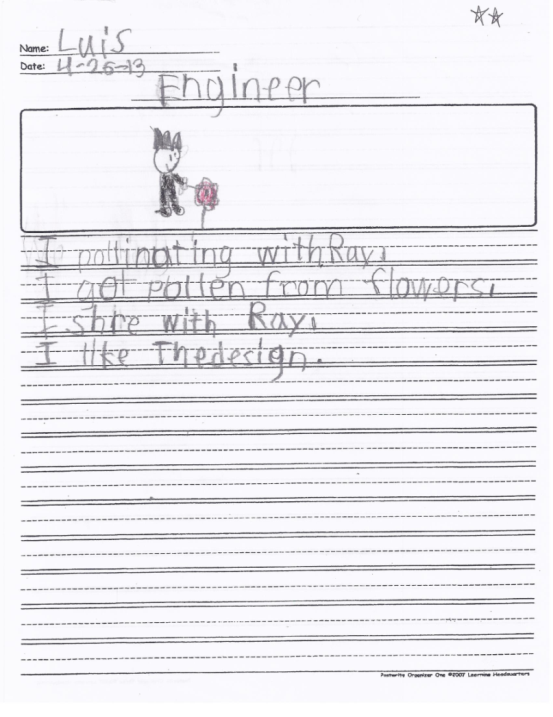 Name: Luis
Date: 4-26-13
Engineer
I pollinating with Ray.
I got pollen from flowers.
I shre with Ray.
I like Thedesign.
Favorite Organizer One ©2007 Learning Headquarters